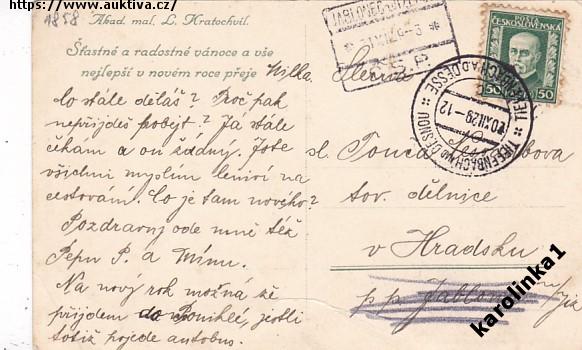 https://www.auktiva.cz
1858
Akad. mal. L. Kratochvíl.
Šťastné a radostné vánoce a vše
nejlepší v novém roce přeje
Milka.
Co stále děláš? Proč pak
nepřijdeš pobejt? Já stále
čekám a on žádný. Jste
všichni myslím leniví na
cestování. Co je tam nového?
Pozdravuj ode mně též
Pepu P. a Mínu.
Na nový rok možná že
přijdem do Poniklé, jestli
totiž pojede autobus.
Slečna
sl.
tov. dělnice
v Hradsku
p. p. Jablonec n/Jiz
POŠTA
ČESKOSLOVENSKÁ
50 50
TIEFENBACH A.D. DESSE
20.XII.29-12
karolinka1